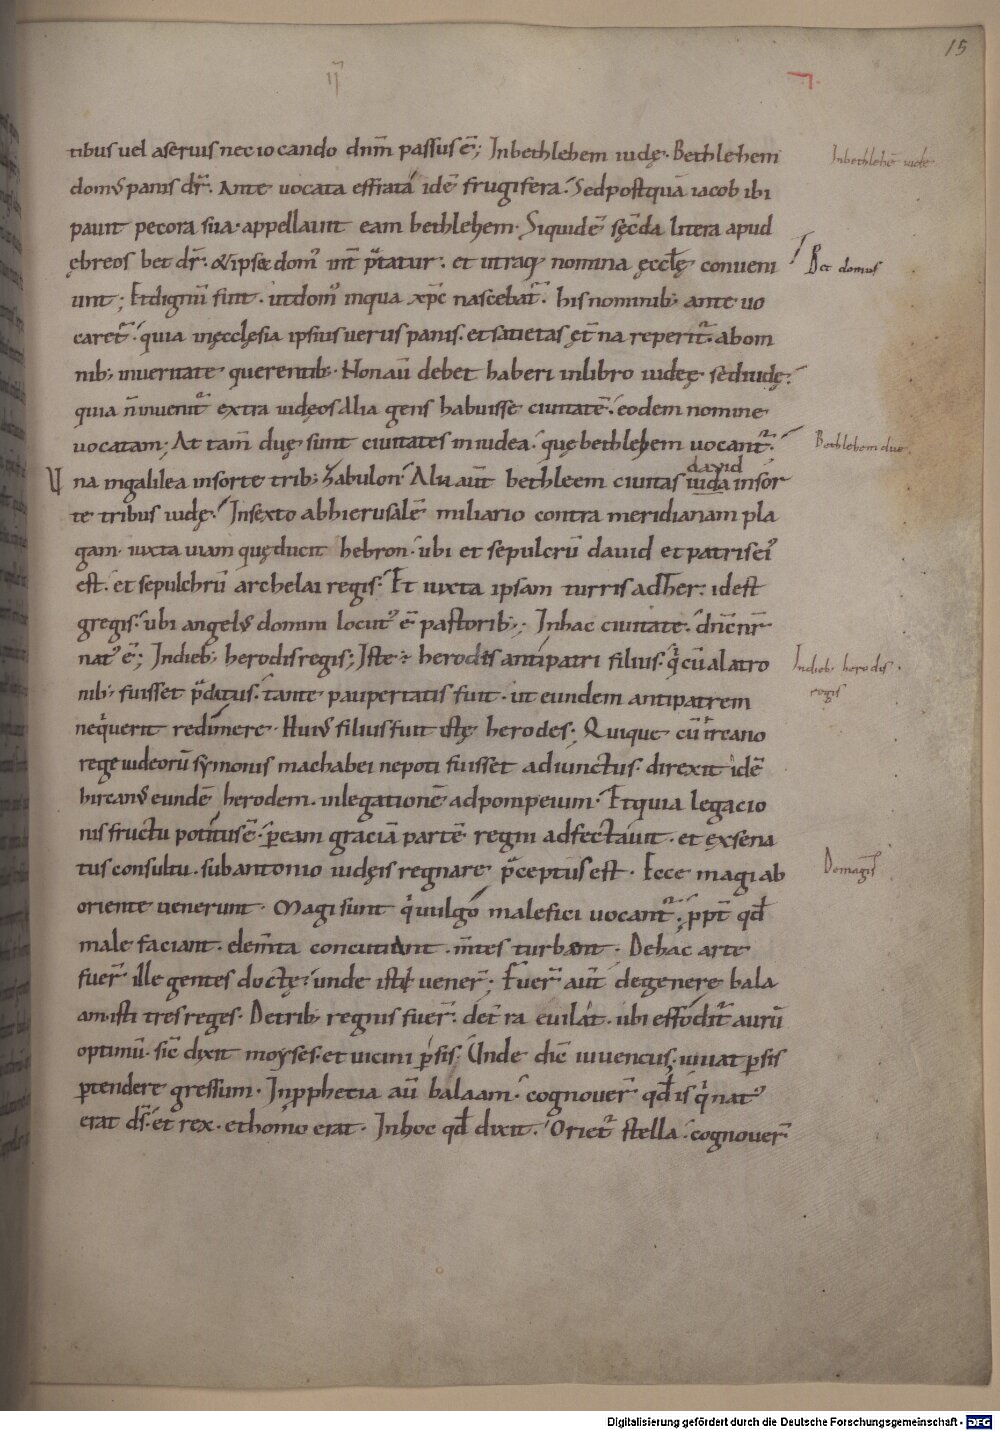 15
II
tibus uel a seruis nec iocando dnm̄ passus ē; In bethlehem iudę. Bethlehem
In bethlehē iudę
domꝰ panis dr̄. Ante uocata effrata idē frugifera. Sed postquā iacob ibi
pauit pecora sua. appellauit eam bethlehem. Siquidē sęcda litera apud
ębreos bet dr̄. & ipsa domꝰ int̄ p̄tatur. et utraq; nomina ęccl̄ę conueni
Bet domus
unt; Et dignū fuit. ut domꝰ in qua xp̄c nascebat̄. his nominib; ante uo
caret̄. quia in ęcclesia ipsius uerus panis. et satietas ęt̄na reperit̄. ab om
nib; in ueritate querentib; Non aū debet haberi in libro iudęę sed iudę.
quia n̄ inuenit̄ extra iudęos alia gens habuisse ciuitatē. eodem nomine
uocatam; At tam̄ duę sunt ciuitates in iudea. quę bethlehem uocant̄.
Bethlehem due.
dauid
Vna in galilea in sorte trib; zabulon. Alia aūt bethleem ciuitas iuda in sor
te tribus iudę. In sexto ab hierusalē miliario contra meridianam pla
gam. iuxta uiam quę ducit hebron. ubi et sepulcrū dauid et patris eiꝰ
est. et sepulchrū archelai regis. Et iuxta ipsam turris adher. id est
gregis. ubi angelꝰ domini locutꝰ ē pastorib;; In hac ciuitate. dn̄c nr̄
natꝰ ē; In dieb; herodis regis; Iste herodes antipatri filius. q̄ cū a latro
In dieb. herodis.
regis
nib; fuisset p̄datus. tante paupertatis fuit. ut eundem antipatrem
neq̄uerit redimere. Huiꝰ filius fuit iste herodes; Qui que cū ircano
rege iudeorū symonis machabei nepoti fuisset adiunctus. direxit idē
hircanꝰ eundē herodem. in legationē ad pompeium. Et quia legacio
nis fructu potitus ē. p̄ eam graciā partē regni adfectauit. et ex sena
tus consultu. sub antonio iudęis regnare p̄ceptus est. Ecce magi ab
De magis
oriente uenerunt. Magi sunt q̄ uulgo malefici uocant̄. ppt̄ qđ
male faciant. elem̄ta concutiant. m̄tes turbant. De hac arte
fuer̄ ille gentes doctę. unde isti uener̄; Fuer̄ aūt de genere bala
am. isti tres reges. De trib; regnis fuer̄. de t̄ra euilat. ubi effodit̄ aurū
optimū. sic̄ dixit moyses. et uicini p̄sis. Unde dic̄ iuuencus. iuuat p̄sis
p̄tendere gressum. In pphetia aū balaam. cognouer̄ qđ is q̄ natꝰ
erat ds̄. et rex. et homo erat. In hoc qđ dixit. Oriet̄ stella. cognouer̄
Digitalisierung gefördert durch die Deutsche Forschungsgemeinschaft - DFG